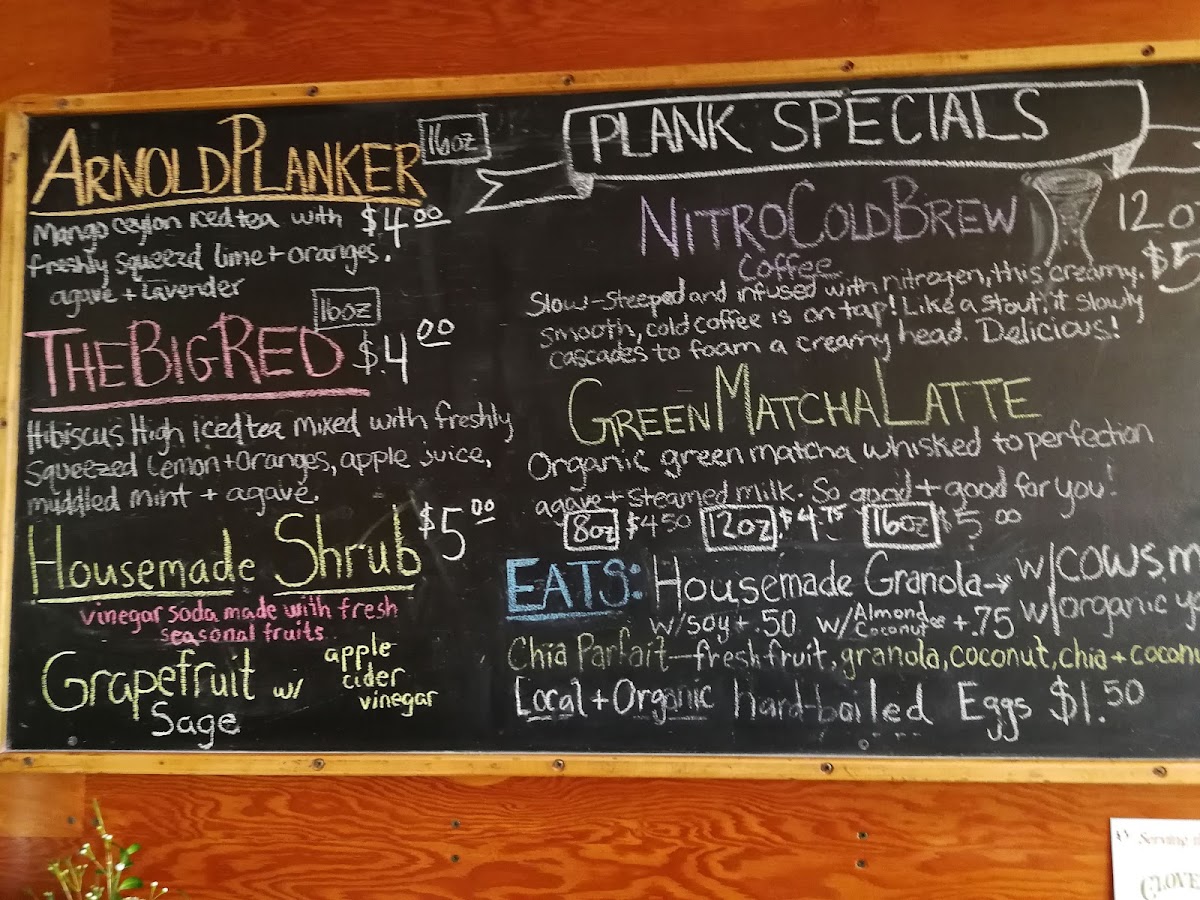 ARNOLD PLANKER 16oz
Mango Ceylon Iced tea with $4.00
freshly squeezd lime + oranges,
agave + lavender
THE BIG RED 16oz $4.00
Hibiscus High Iced tea mixed with freshly
squeezed lemon + oranges, apple juice,
muddled mint + agave.
Housemade Shrub $5.00
vinegar soda made with fresh
seasonal fruits
Grapefruit w/ apple cider vinegar
Sage
PLANK SPECIALS
NITRO COLD BREW 12o
Coffee $5
Slow-steeped and infused with nitrogen, this creamy,
smooth, cold coffee is on tap! Like a stout, it slowly
cascades to foam a creamy head. Delicious!
GREEN MATCHA LATTE
Organic green matcha whisked to perfection
agave + steamed milk. So good + good for you!
8oz $4.50 12oz $4.75 16oz $5.00
EATS: Housemade Granola → w/cows m
w/soy + .50 w/Almond or Coconut + .75 w/organic yo
Chia Parfait — fresh fruit, granola, coconut, chia + coconu
Local + Organic hard-boiled Eggs $1.50
Serving
CLOVE